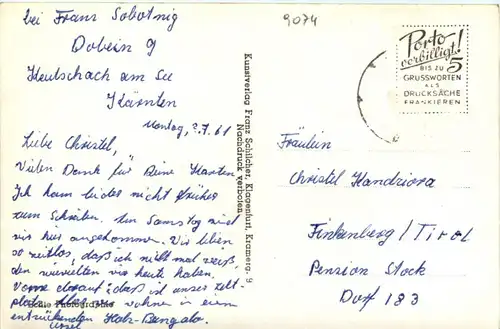 bei Franz Sobotnig
Dobein 9
Keutschach am See
Kärnten
Montag, 3.7.61
Liebe Christel,
Vielen Dank für Deine Karten.
Ich kam leider nicht früher
zum Schreiben. Am Samstag sind
wir hier angekommen. Wir leben
so zeitlos, daß ich nicht mal weiß,
den wievielten wir heute haben.
Vorne darauf: daß ist unser Zelt-
platz. Wir wohnen in einem
entzückenden Holz-Bungalo.
9074
Porto
verbilligt!
BIS ZU 5
GRUSSWORTEN
ALS
DRUCKSACHE
FRANKIEREN
Kunstverlag Franz Schilcher, Klagenfurt, Kramerg. 9
Nachdruck verboten.
Echte Photographie
Fräulein
Christel Kandziora
Finkenberg/Tirol
Pension Stock
Dorf 183